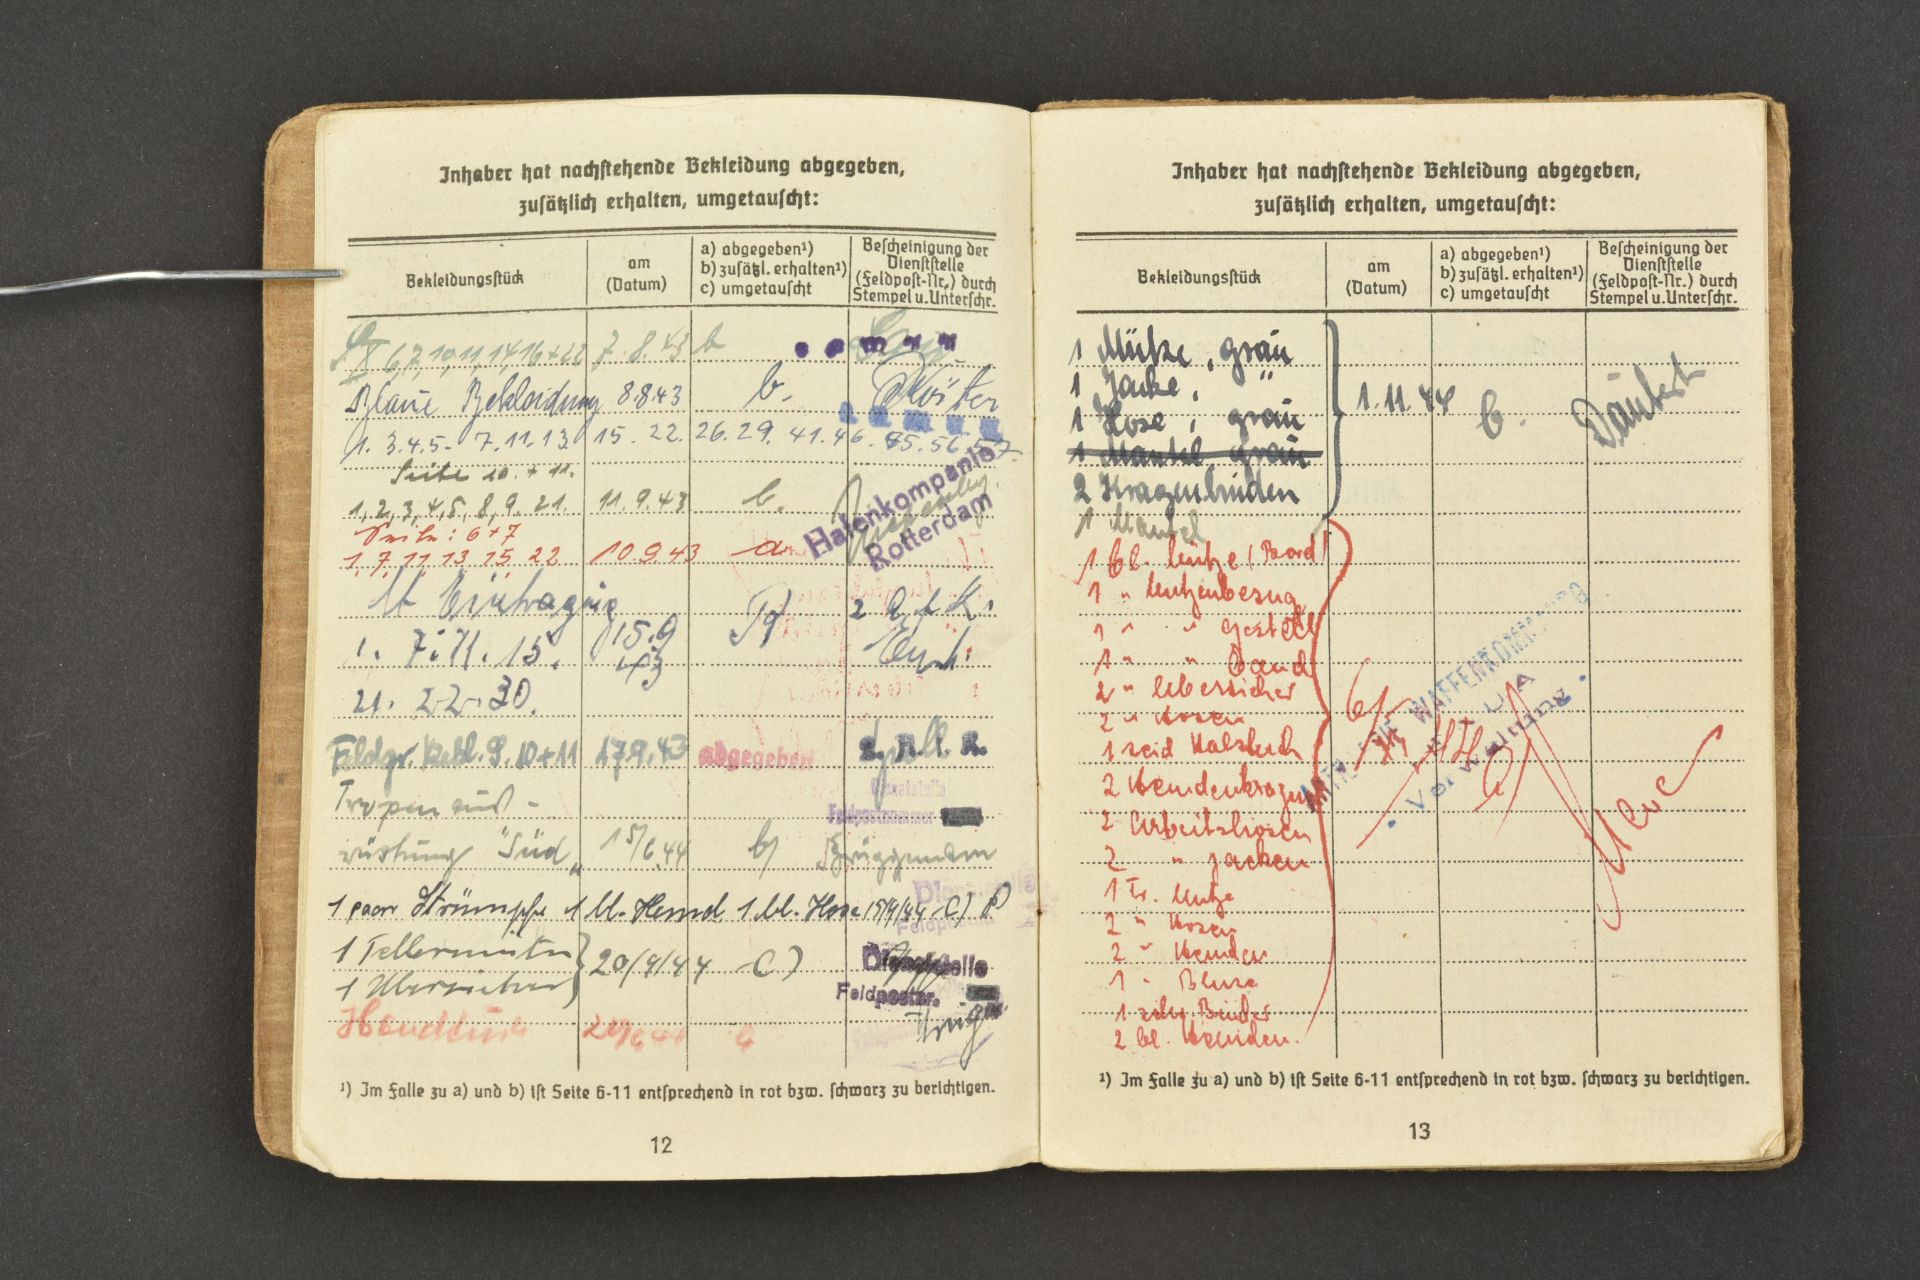 Inhaber hat nachstehende Bekleidung abgegeben,
zusätzlich erhalten, umgetauscht:
Bekleidungsstück
am
(Datum)
a) abgegeben¹)
b) zusätzl. erhalten¹)
c) umgetauscht
Bescheinigung der
Dienststelle
(Feldpost-Nr.) durch
Stempel u. Unterschr.
6,7,10,11,14,16+22 7.8.43 b
Blaue Bekleidung 8.8.43 b. Köster
1. 3.4.5. 7.11.13. 15. 22. 26. 29. 41. 46. 55. 56. 57.
Seite 10. + 11.
1, 2, 3, 4, 5, 8, 9. 21. 11.9.43 b.
Hafenkompanie
Rotterdam
Seite: 6+7
1, 7, 11, 13, 15, 22 10.9.43 a
1. 7. 11. 15. 15.9
43
21. 22. 30.
Feldgr. Bekl. S. 10+11 17.9.43 abgegeben
Dienststelle
Feldpostnummer
Tropenaus-
rüstung "Süd" 15/6.44 b) Brüggemann
1 paar Strümpfe 1 bl. Hemd. 1 bl. Hose 15/9/44 c)
Dienststelle
Feldpostnr.
1 Tellermütze
1 Überzieher 20/9/44 c)
Dienststelle
Feldpostnr.
¹) Im Falle zu a) und b) ist Seite 6-11 entsprechend in rot bzw. schwarz zu berichtigen.
12
Inhaber hat nachstehende Bekleidung abgegeben,
zusätzlich erhalten, umgetauscht:
Bekleidungsstück
am
(Datum)
a) abgegeben¹)
b) zusätzl. erhalten¹)
c) umgetauscht
Bescheinigung der
Dienststelle
(Feldpost-Nr.) durch
Stempel u. Unterschr.
1 Mütze, grau
1 Jacke, "
1 Hose, grau
1 Mantel grau
2 Kragenbinden
1.11.44 b.
1 Mantel
1 bl. Mütze (Bord)
1 " Mützenbezug
1 " " gestell
1 " " Band
2 " Überzieher
2 " Hosen
1 seid Halstuch
2 Hemdenkragen
2 Arbeitshosen
2 " Jacken
1 Tr. Mütze
2 " Hosen
2 " Hemden
1 " Bluse
1 schw. Binder
2 bl. Hemden.
Verwaltung
¹) Im Falle zu a) und b) ist Seite 6-11 entsprechend in rot bzw. schwarz zu berichtigen.
13